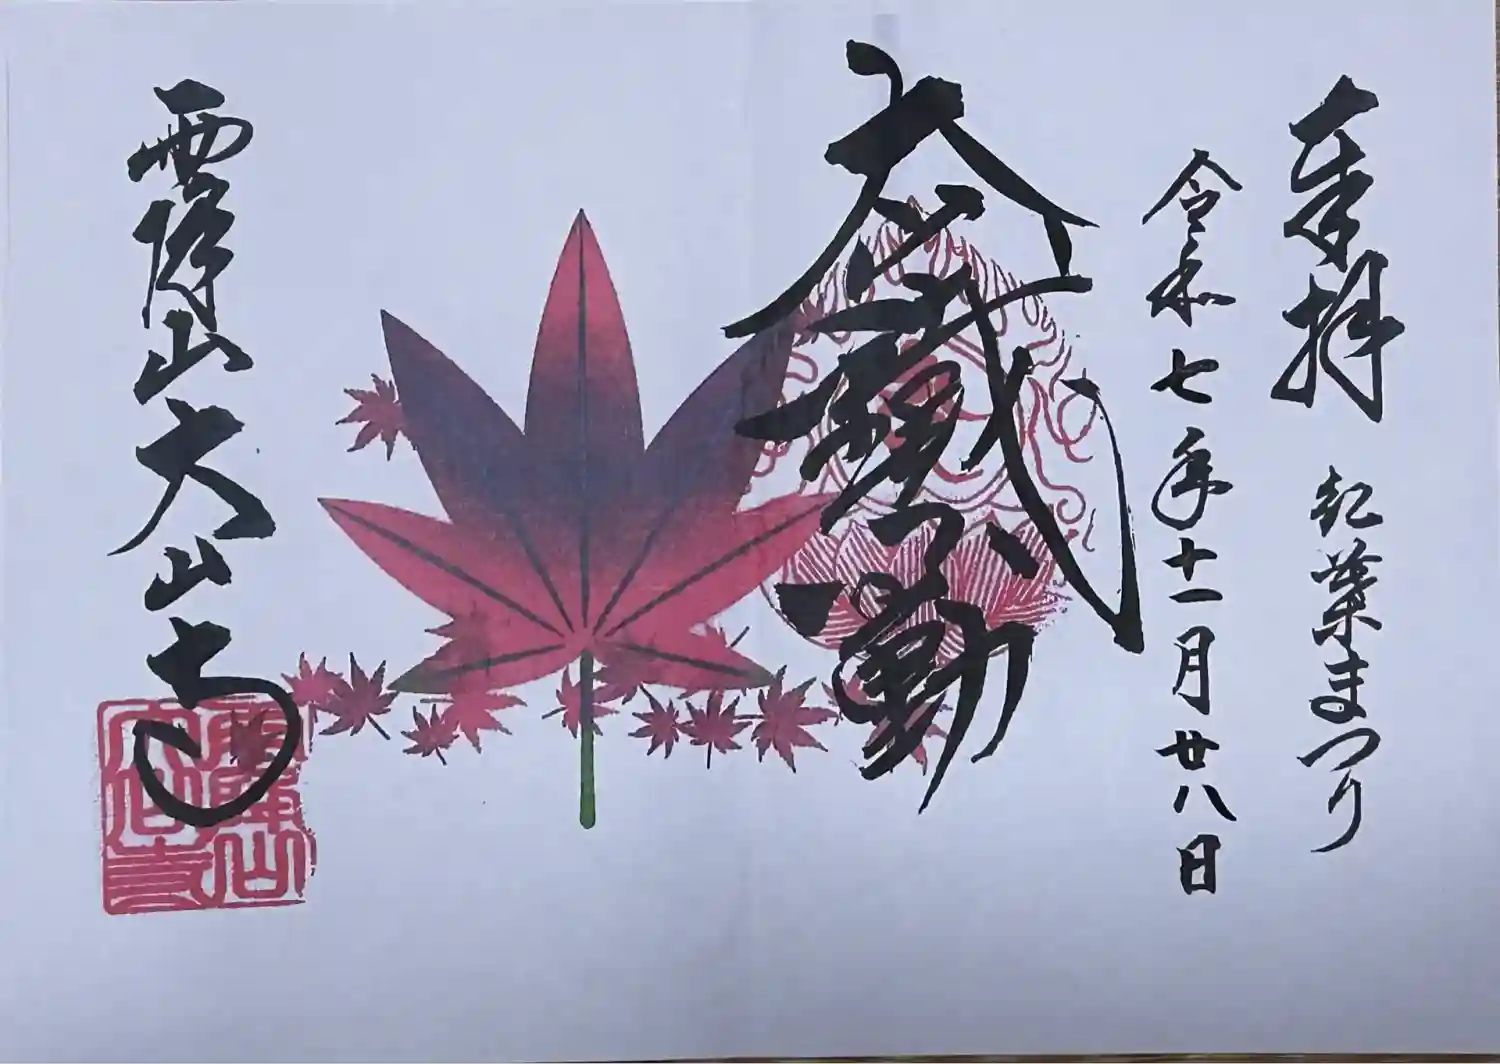 奉拝 紅葉まつり
令和七年十一月廿八日
大鐵不動
雨降山大山寺
雨降山
大山寺